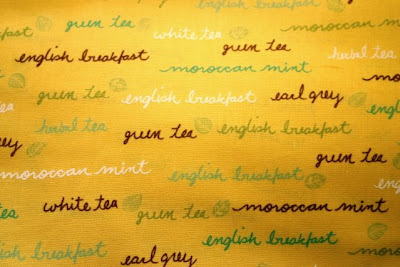 english breakfast
green tea
white tea
green tea
english breakfast
herbal tea
moroccan mint
green tea
english breakfast
earl grey
herbal tea
green tea
english breakfast
green tea
moroccan mint
english breakfast
white tea
green tea
moroccan mint
english breakfast
english breakfast
earl grey